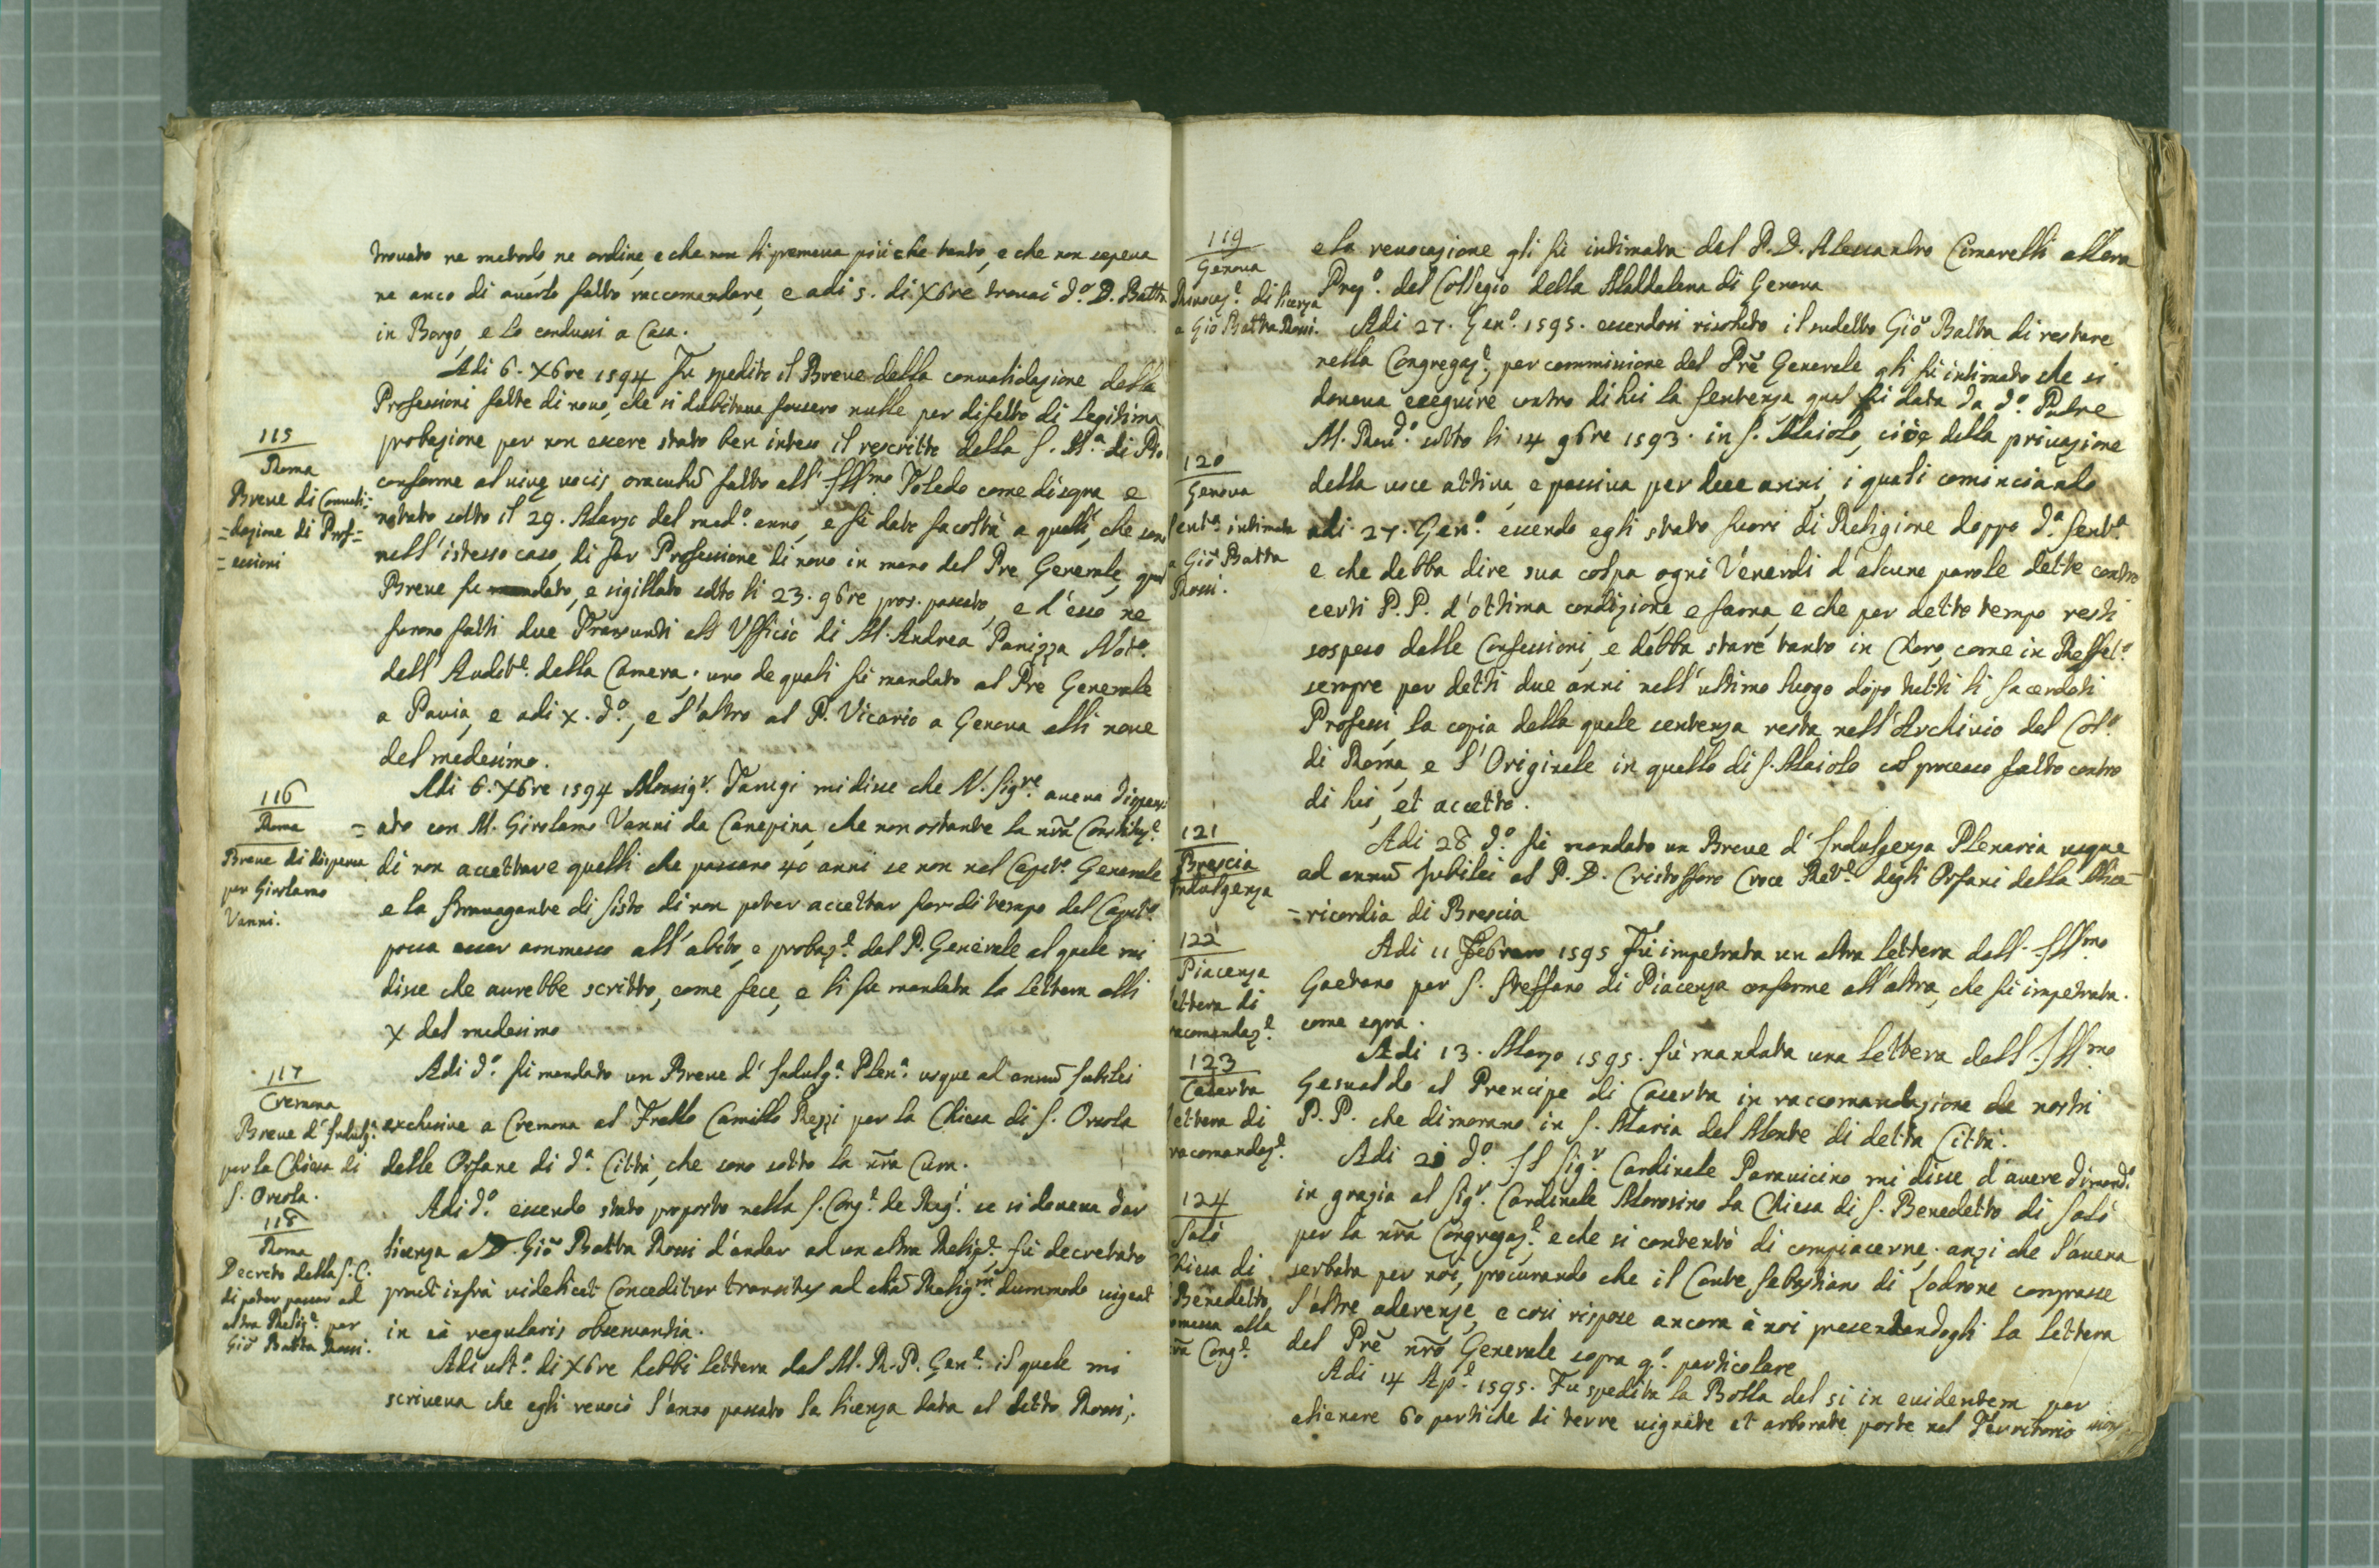 trouato ne metodo ne ordine, e che non li premeua più che tanto, e che non sapeua
ne anco di auerlo fatto raccomandare, e adi 5. di X6re trouai d.º D. Batta
in Borgo, e lo condussi a Casa.
Adi 6. X6re 1594 Fu spedito il Breue della conualidazione della
Professioni fatte di nouo, che si dubitaua fossero nulle per difetto di legitima
115
Roma
Breue di Conuali=
=dazione di Prof=
=essioni
probazione per non essere stato ben inteso il rescritto della S. M.ª di Pio
conforme al viuę uocis oraculũ fatto all' Illmo Toledo come di sopra e
notato sotto il 29. Marzo del med.º anno, e fù dato facoltà a quelli, che sono
nell' istesso caso, di far Professione di nouo in mano del Pre Generale, qual
Breue fu dato, e sigillato sotto li 23. 9bre pros. passato, e d' esso ne
furono fatti due Transunti all' Ufficio di M. Andrea Panizza Not.º
dell' Audit.e della Camera. uno de quali fù mandato al Pre Generale
a Pauia, e adi x. d.º, e l' altro al P. Vicario a Genoua alli noue
del medesimo.
116
Roma
Breue di dispensa
per Girolamo
Vanni.
Adi 6. X6re 1594 Monsig.r Tarugi mi disse che N. Sig.re aueua dispens
=ato con M. Girolamo Vanni da Canepina, che non ostante la nr̃a Constituz.e
di non accettare quelli che passano 40 anni se non nel Capit.º Generale
e la strauagante di Sisto di non poter accettar for di tempo del Capit.º
possa esser ammesso all' abito, e probaz.e dal P. Generale, al quale mi
disse che aurebbe scritto, come fece, e li fu mandata la lettera alli
X del medesimo
117
Cremona
Breue d' Indulg.ª
per la Chiesa di
S. Orsola.
Adi d.º fù mandato un Breue d' Indulg.ª Plen.ª usque ad annũ Jubilei
exclusiue a Cremona al Frello Camillo Rezzi per la Chiesa di S. Orsola
delle Orfane di d.ª Città, che sono sotto la nr̃a Cura.
118
Roma
Decreto della S. C.
di poter passar ad
altra Relig.e per
Giõ Batta Rossi.
Adi d.º essendo stato proposto nella S. Cong.e de Reg.i se si doueua dar
licenza a D. Giõ Batta Rossi d' andar ad un altra Relig.e fù decretato
prout infrà uidelicet Conceditur transitus ad aliã Relig.m dummodo uigeat
in eà regularis obseruantia.
Adi ult.º di X6re hebbi lettera dal M. R. P. Gen.e il quale mi
scriueua che egli reuocò l' anno passato la licenza data al detto Rossi,
119
Genoua
Reuocaz.e di licenza
a Giõ Batta Rossi.
e la reuocazione gli fù intimata dal P. D. Alessandro Cimarelli allora
Prep.º del Collegio della Maddalena di Genoua
Adi 27. Gen.º 1595. essendosi risoluto il sudetto Giõ Batta di restare
nella Congregaz.e, per commissione del Prẽ Generale gli fù intimato che si
doueua eseguire contro di lui la sentenza qual fù data da d.º Padre
M. Reu.dº sotto li 14 9bre 1593. in S. Maiolo, cioè della priuazione
120
Genoua
Sent.ª intimata
a Giõ Batta
Rossi.
della uoce attiua, e passiua per due anni, i quali cominciando
adi 27. Gen.º essendo egli stato fuori di Religione doppo d.ª sent.ª
e che debba dire sua colpa ogni Venerdì d' alcune parole dette contro
certi P.P. d' ottima condizione, e fama, e che per detto tempo resti
sospeso dalle Confessioni, e debba stare tanto in Choro, come in Reffet.º
sempre per detti due anni nell' ultimo luogo dopo tutti li sacerdoti
Professi, la copia della quale sentenza resta nell' Archiuio del Col.º
di Roma, e l' Originale in quello di S. Maiolo col processo fatto contro
di lui, et accetto.
121
Brescia
Indulgenza
Adi 28 d.º fù mandato un Breue d' Indulgenza Plenaria usque
ad annũ Jubilei al P. D. Cristofforo Croce Ret.e degli Orfani della Mise=
=ricordia di Brescia
122
Piacenza
ettera di
racomandaz.e
Adi 11 Febraro 1595 Fù impetrata un altra lettera dall' Illmo
Gaetano per S. Steffano di Piacenza conforme all' altra, che fù impetrata.
come sopra.
123
Caserta
lettera di
racomandaz.e
Adi 13. Marzo 1595. fù mandata una lettera dall' Illmo
Gesualdo al Prencipe di Caserta in raccomandazione de nostri
P.P. che dimorano in S. Maria del Monte di detta Città.
124
Salò
hiesa di
Benedetto
omessa alla
nr̃a Cong.e
Adi d.º Il Sig.r Cardinale Parauicino mi disse d' auere dimand.º
in grazia al Sig.r Cardinale Morosino la Chiesa di S. Benedetto di Salò
per la nr̃a Congregaz.e e che si contentò di compiacerne, anzi che l' aueua
serbata per noi, procurando che il Conte Sebastiano di Lodrone comprasse
l' altre aderenze, e così rispose ancora à noi presentandogli la lettera
del Prẽ nr̃o Generale sopra q.º particolare
Adi 14 Ap.e 1595. Fu spedita la Bolla del si in euidentem per
alienare 60 pertiche di terre uignate et arborate poste nel Territorio